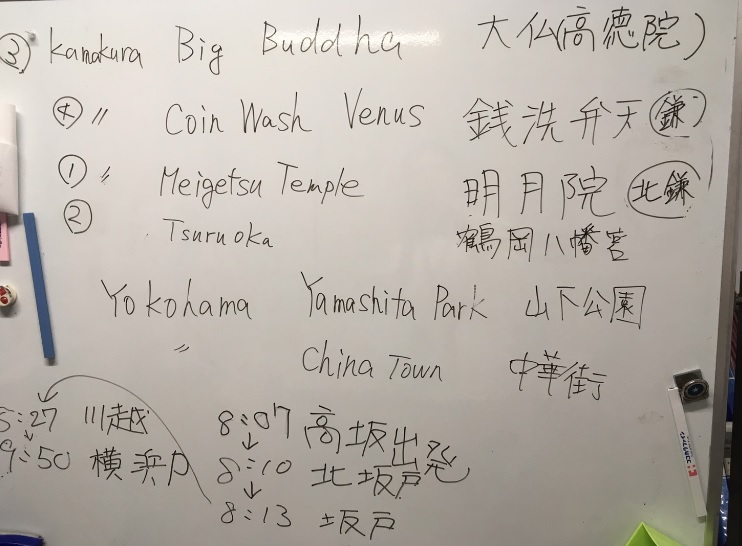 ③ Kamakura Big Buddha 大仏(高徳院)
④ 〃 Coin Wash Venus 銭洗弁天 鎌
① 〃 Meigetsu Temple 明月院 北鎌
② Tsuruoka 鶴岡八幡宮
Yokohama Yamashita Park 山下公園
〃 China Town 中華街
:27 川越
9:50 横浜
8:07 高坂出発
↓
8:10 北坂戸
↓
8:13 坂戸